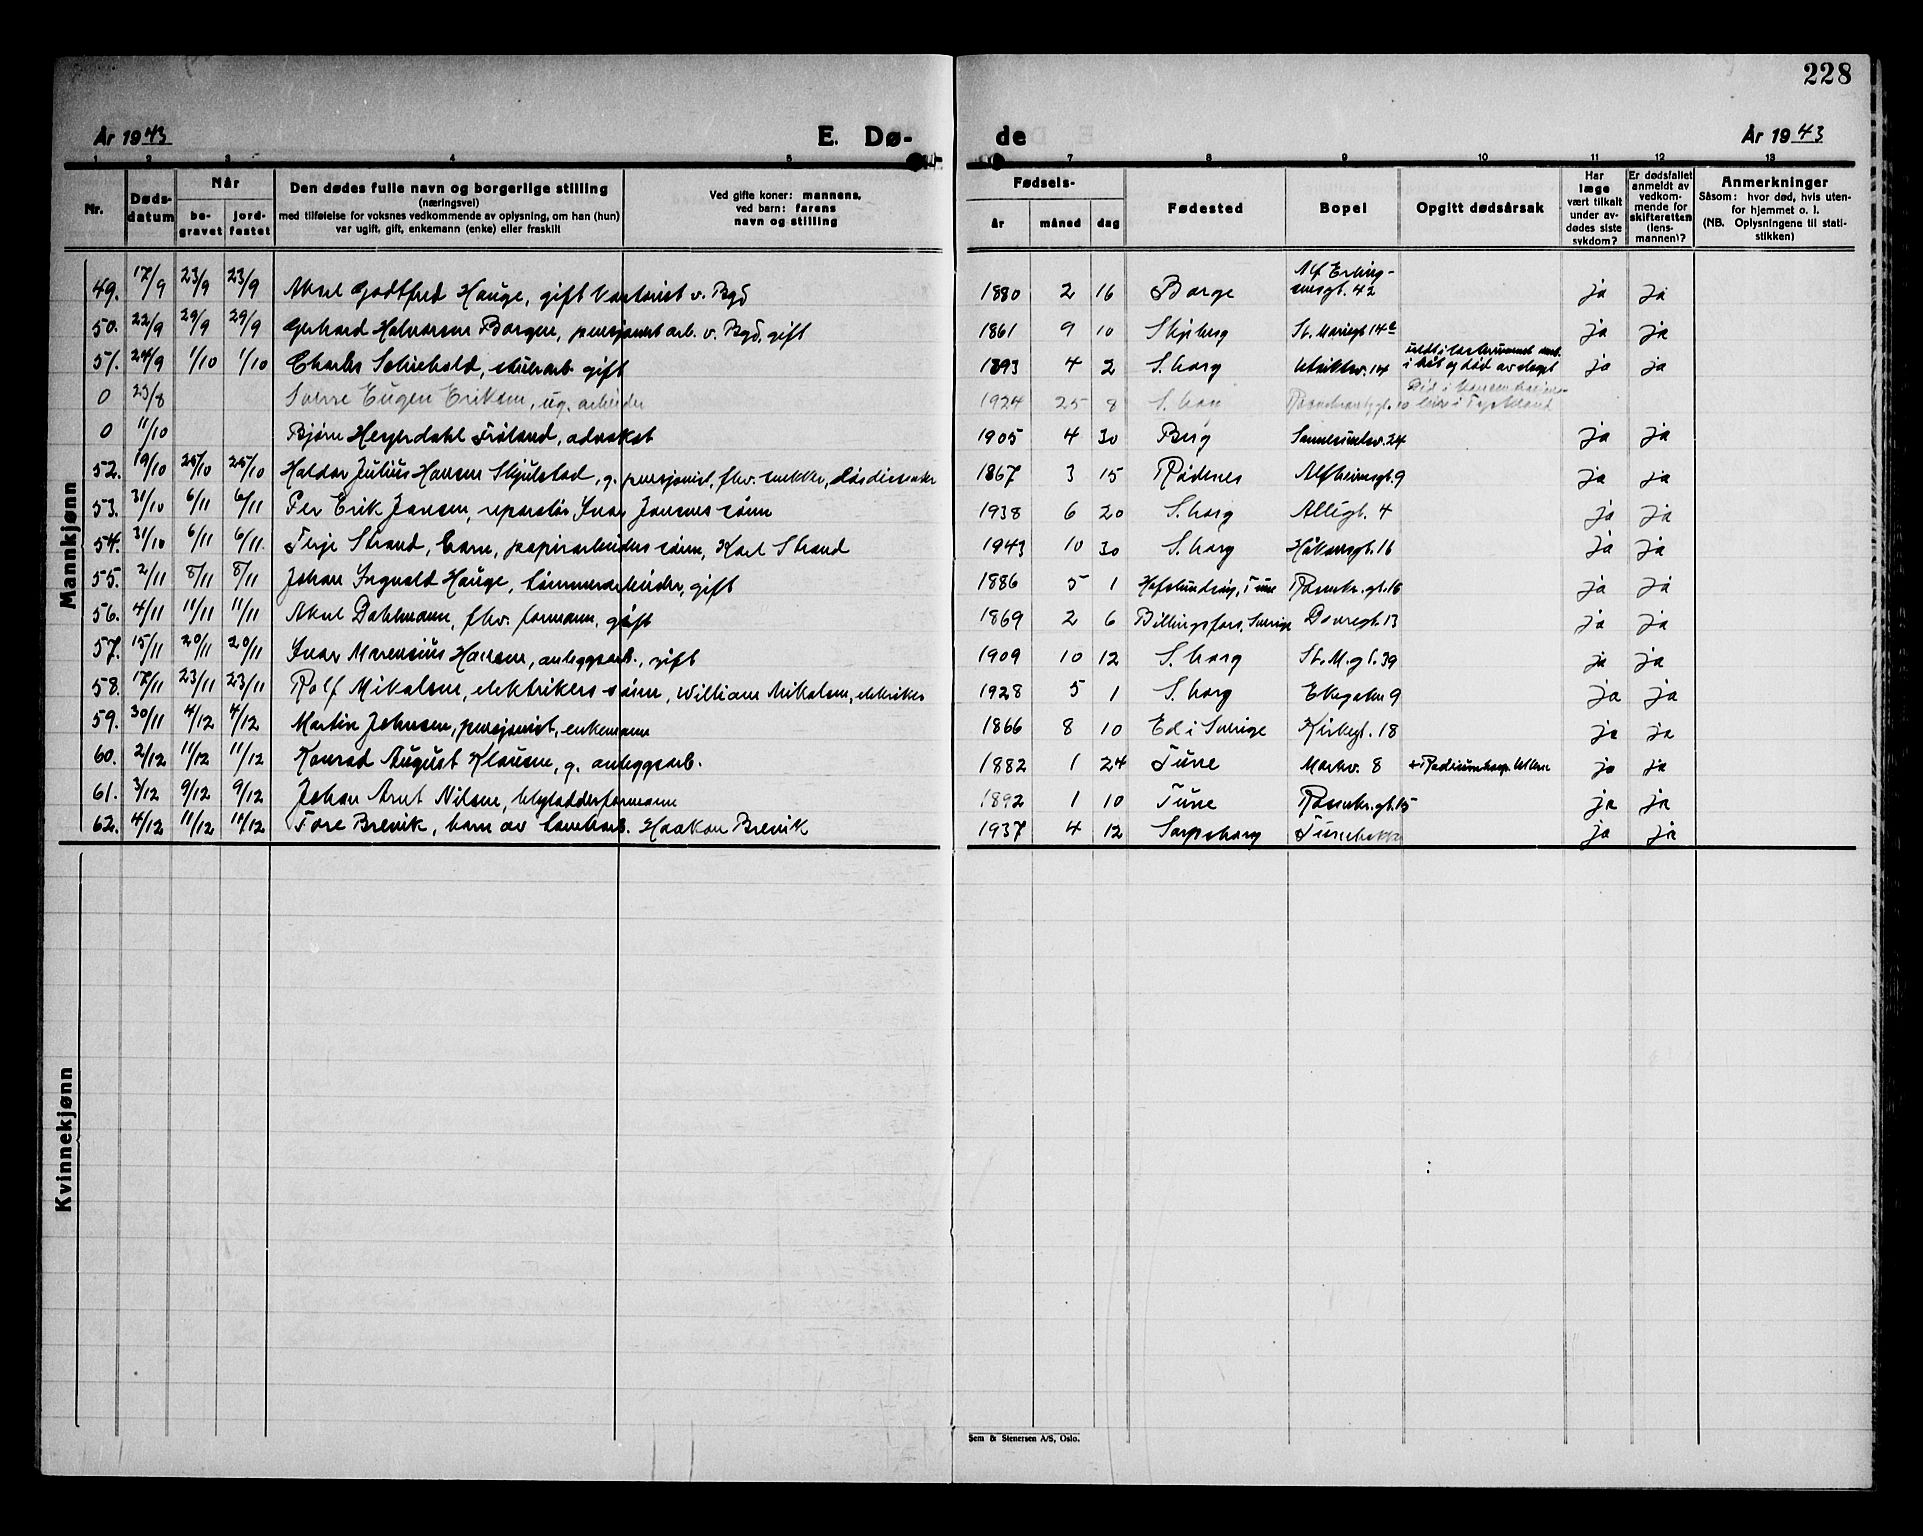 228
År 1943 E. Dø- de År 1943
1 2 3 4 5 7 8 9 10 11 12 13
Nr.
Døds-
datum
Når
be-
gravet
jord-
festet
Den dødes fulle navn og borgerlige stilling
(næringsvei)
med tilføielse for voksnes vedkommende av oplysning, om han (hun)
var ugift, gift, enkemann (enke) eller fraskilt
Ved gifte koner: mannens,
ved barn: farens
navn og stilling
Fødsels-
år måned dag
Fødested
Bopel
Opgitt dødsårsak
Har
læge
vært tilkalt
under av-
dødes siste
sykdom?
Er dødsfallet
anmeldt av
vedkom-
mende for
skifteretten
(lens-
mannen)?
Anmerkninger
Såsom: hvor død, hvis uten-
for hjemmet o. l.
(NB. Oplysningene til stati-
stikken)
Mannkjønn
49. 17/9 23/9 23/9 Aksel Godtfred Hauge, gift v. Bgd 1880 2 16 Borge Alf Erling-
sensgt. 42 ja ja
50. 22/9 29/9 29/9 Gerhard Halvorsen Borgen, pensjonert arb. v. Bgd, gift 1861 9 10 Skjeberg St. Mariegt 14 ja ja
51. 24/9 1/10 1/10 Charles Schiehold, gift 1893 4 2 S.borg 14 i båt og død av slaget ja ja
0 23/8 Sverre Eugen Eriksen, ug. arbeider 1924 25 8 S.borg i Tyskland
0 11/10 Bjørn Heyerdahl Frøland, advokat 1905 4 30 Berg 24 ja ja
52. 19/10 25/10 25/10 Haldor Julius Hansen Skjulstad, g. pensjonist, fhv. snekker, 1867 3 15 Rødenes Alfheimsgt. 9 ja ja
53. 31/10 6/11 6/11 Per Erik Jansen, reparatør Ivar Jansens sønn 1938 6 20 S.borg Allégt. 4 ja ja
54. 31/10 6/11 6/11 Terje Strand, barn, papirarbeiders sønn, Karl Strand 1943 10 30 S.borg Håkonsgt. 16 ja ja
55. 2/11 8/11 8/11 Johan Ingvald Hauge, tømmerarbeider, gift 1886 5 1 Hafslundsøy, Tune Rosenkr.gt. 16 ja ja
56. 4/11 11/11 11/11 Aksel Dahlmann, fhv. formann, gift 1869 2 6 Billingsfors, Sverige Dovregt. 13 ja ja
57. 15/11 20/11 20/11 Ivar Marensius Hansen, anleggsarb., gift 1909 10 12 S.borg St. M.gt. 39 ja ja
58. 17/11 23/11 23/11 Rolf Mikalsen, elektrikers sønn, William Mikalsen, elektriker 1928 5 1 S.borg Ekegaten 9 ja ja
59. 30/11 4/12 4/12 Martin Johnsen, pensjonist, enkemann 1866 8 10 Ed i Sverige Kirkegt. 18 ja ja
60. 2/12 11/12 11/12 Konrad August Klausen, g. anleggsarb. 1882 1 24 Tune Markv. 8 + Radiumhosp. Ullern ja ja
61. 3/12 9/12 9/12 Johan Arnt Nilsen, 1892 1 10 Tune Rosenkr.gt. 15 ja ja
62. 4/12 11/12 11/12 Tore Brevik, barn av Haakon Brevik 1937 4 12 Sarpsborg ja ja
Kvinnekjønn
Sem & Stenersen A/S, Oslo.